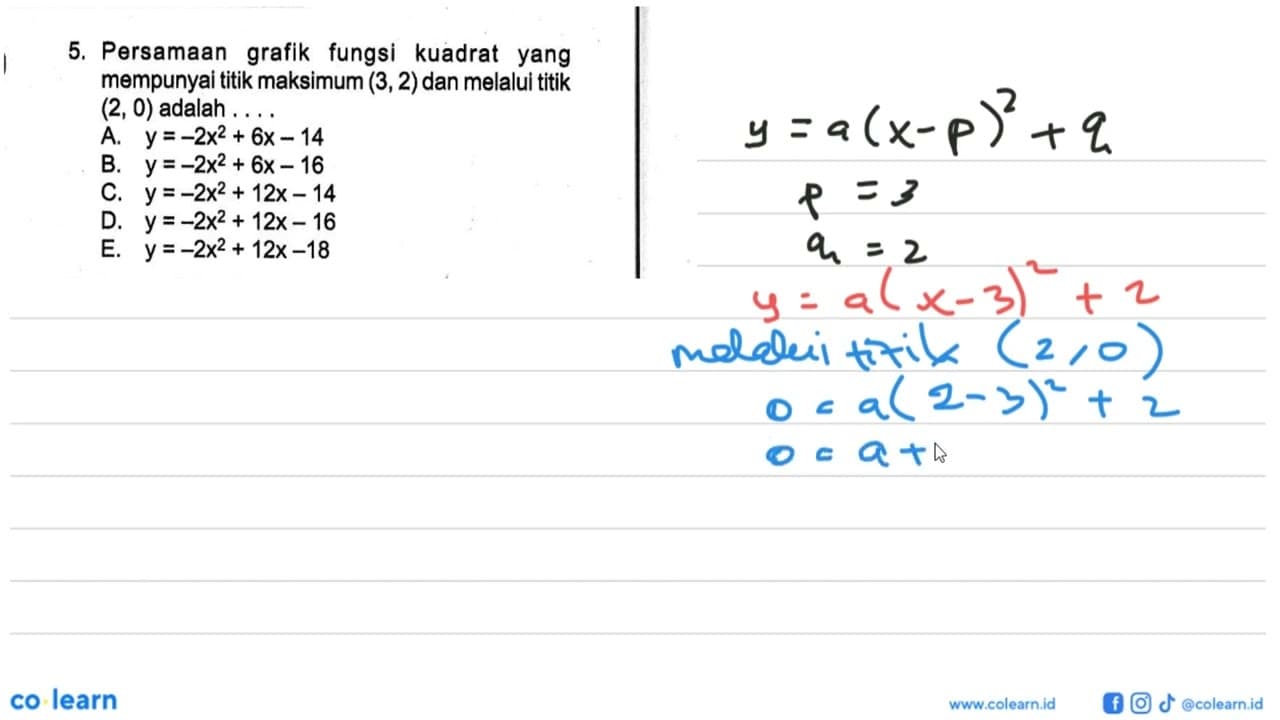 5. Persamaan grafik fungsi kuadrat yang
mempunyai titik maksimum (3, 2) dan melalui titik
(2, 0) adalah . . . .
A. y = –2x² + 6x – 14
B. y = –2x² + 6x – 16
C. y = –2x² + 12x – 14
D. y = –2x² + 12x – 16
E. y = –2x² + 12x –18
y = a(x-p)² + q
p = 3
q = 2
y = a(x-3)² + 2
melalui titik (2,0)
0 = a(2-3)² + 2
0 = a +
co learn
www.colearn.id
@colearn.id